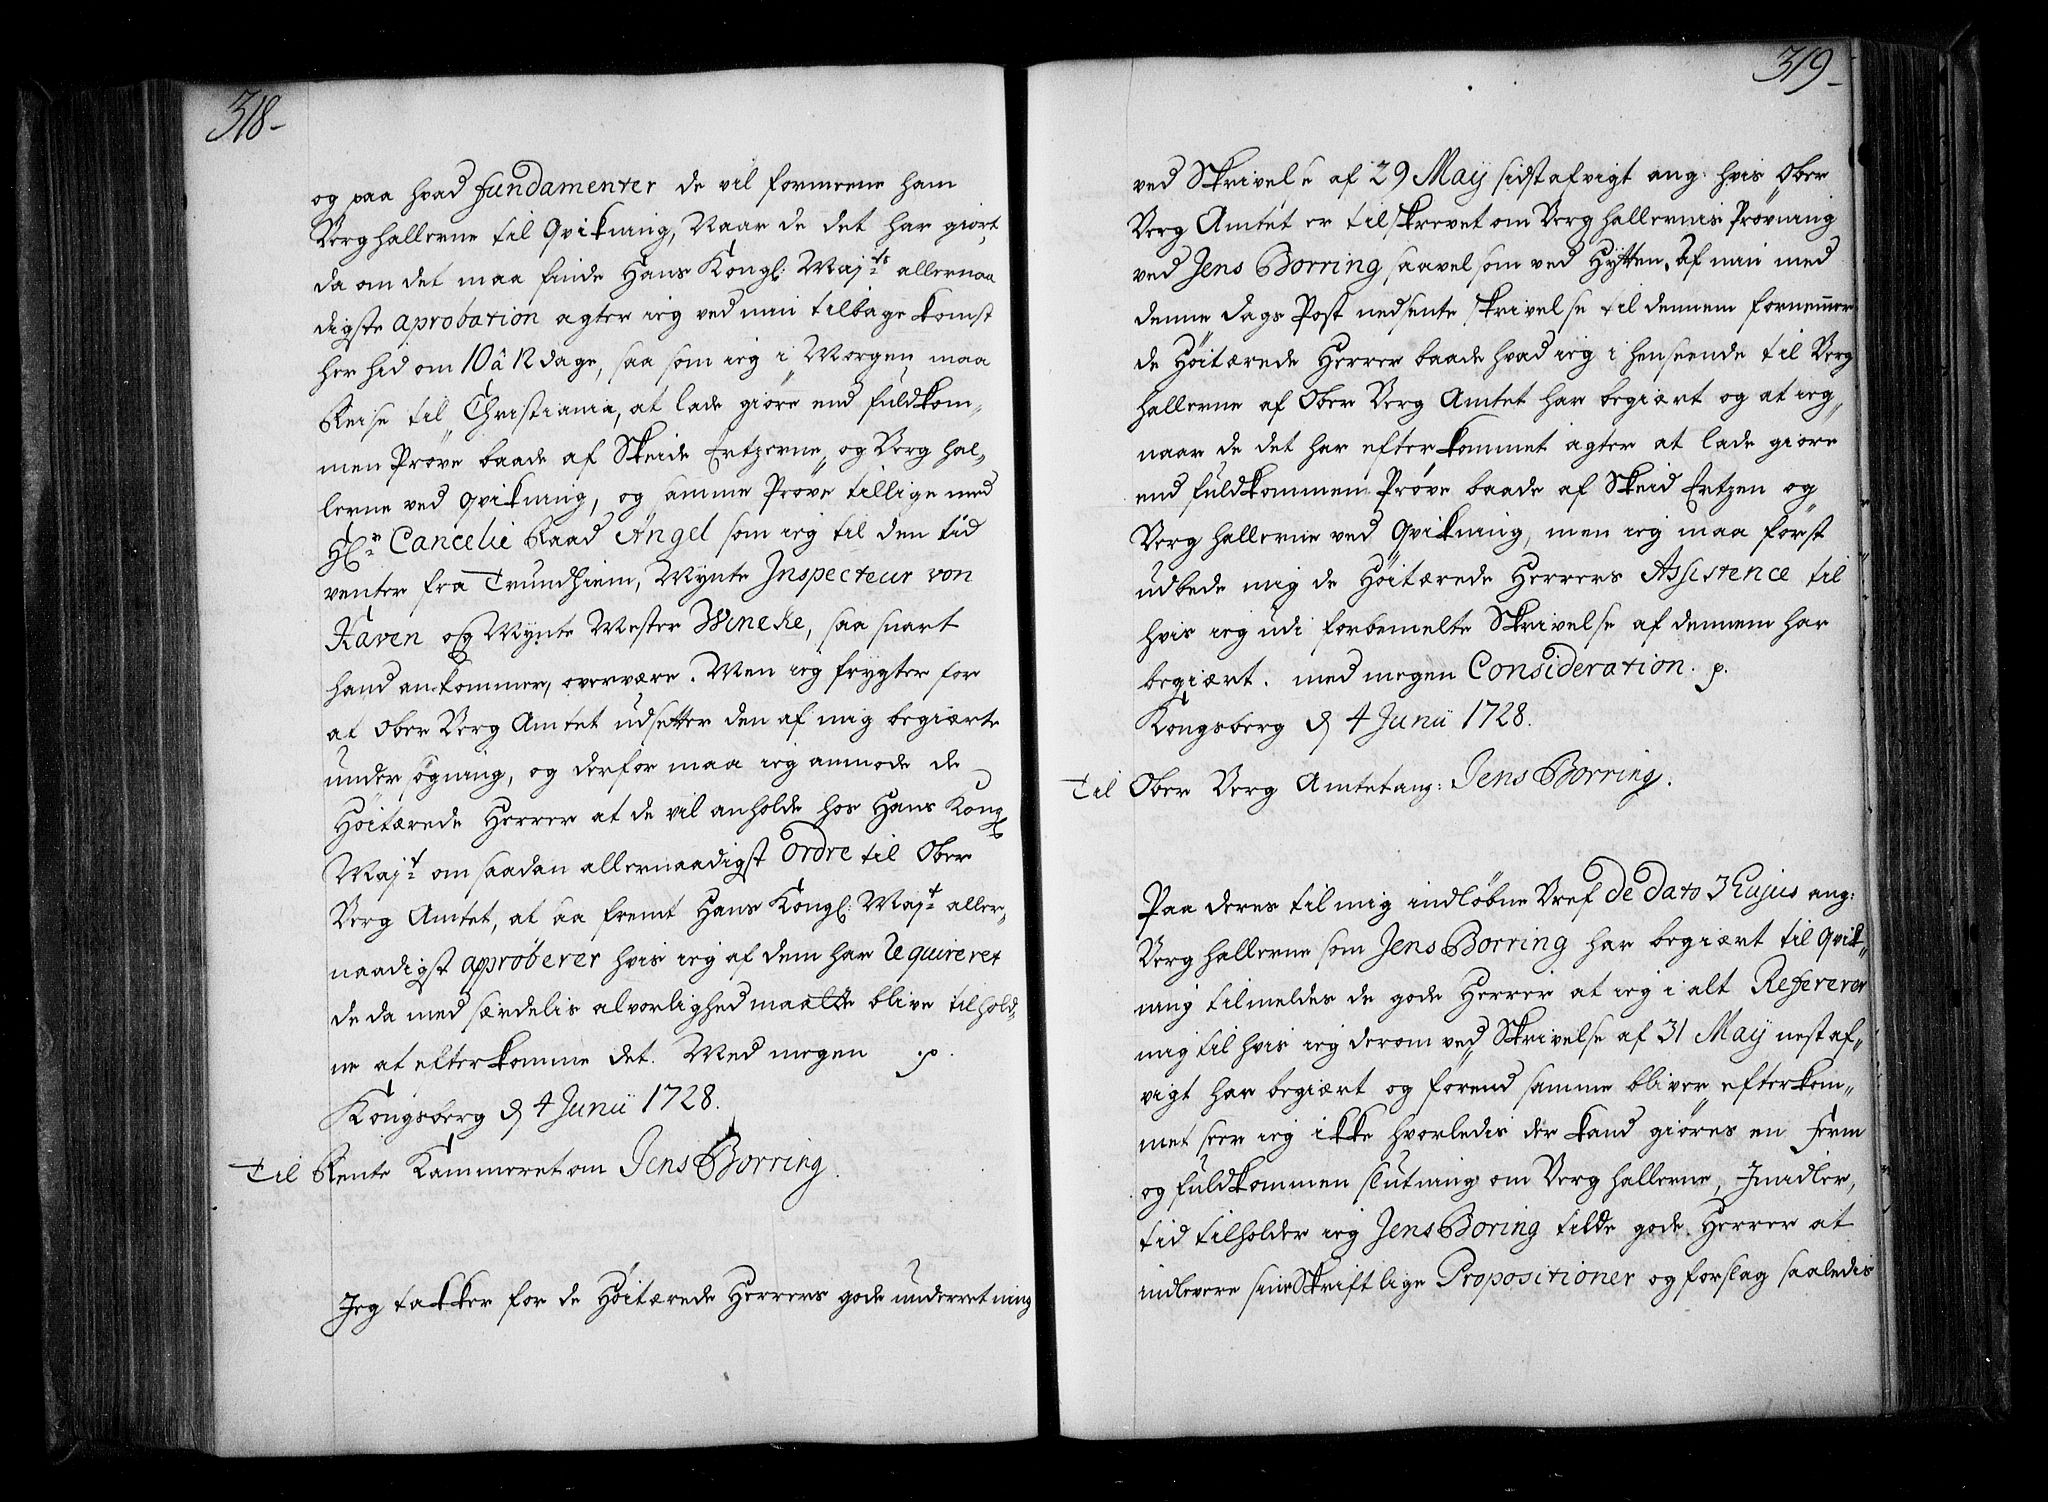 318-
og paa hvad fundamenter de vil formeene ham
Berghallerne til Qvikning, Naar de det har giort,
da om det maa finde Hans Kongl: Majts allernaa
digste aprobation agter ieg ved min tilbage komst
her hid om 10 â 12 dage, saa som ieg i Morgen maa
Reise til Christiania, at lade giøre end fuldkom„
men Prøve baade af Skeide Ertzerne og Berg hal„
lerne ved qvikning, og samme Prøve tillige med
Hr Cancelie Raad Angel som ieg til den tid
venter fra Trundhiem, Mynte Inspecteur von
Haven og Mynte Mester Wineke, saa snart
hand ankommer, overvære. Men ieg frygter for
at Ober Berg Amtet udsetter den af mig begiærte
undersøgning, og derfor maa ieg anmode de
Höitærede Herrer at de vil anholde hos Hans Kongl
Majt om saadan allernaadigst Ordre til Ober
Berg Amtet, at saa fremt Hans Kongl: Majt aller„
naadigst approberer hvis ieg af dem har requireret
de da med særdelis alvorlighed maatte blive tilhold„
ne at efterkomme det. Med megen p.
Kongsberg d 4 Junii 1728.
Til Rente Kammeret om Jens Borring.
Jeg takker for de Höitærede Herrers gode underretning
319-
ved Skrivelse af 29 Maij sidstafvigt ang: hvis Ober
Berg Amtet er tilskrevet om Berg hallernis Prøvning
ved Jens Borring, saavel som ved Hytten. Af min med
denne dags Post nedsente skrivelse til dennem fornemmer
de Höitærede Herrer baade hvad ieg i henseende til Berg
hallerne af Ober Berg Amtet har begiært og at ieg„
naar de det har efterkommet agter at lade giøre
end fuldkommen Prøve baade af Skeid Ertzen og
Berg hallerne ved Qvikning, men ieg maa først
udbede mig de Höitærede Herrers Assistence til
hvis ieg udi forbemelte Skrivelse af dennem har
begiært. med megen Consideration. p.
Kongsberg d 4 Junii 1728.
Til Ober Berg Amtet ang: Jens Borring.
Paa deres til mig indløbne Bref de dato 3 Hujus ang:
Berghallerne som Jens Borring har begiært til qvik„
ning tilmeldes de gode Herrer at ieg i alt Refererer
mig til hvis ieg derom ved Skrivelse af 31 Maij nestaf„
vigt har begiært og førend samme bliver efterkom„
met seer ieg ikke hvorledis der kand giøres en ferm
og fuldkommen slutning om Berg hallerne, Imidler„
tid tilholder ieg Jens Boring til de gode Herrer at
indlevere sine Skriftlige Propositioner og forslag saaledis